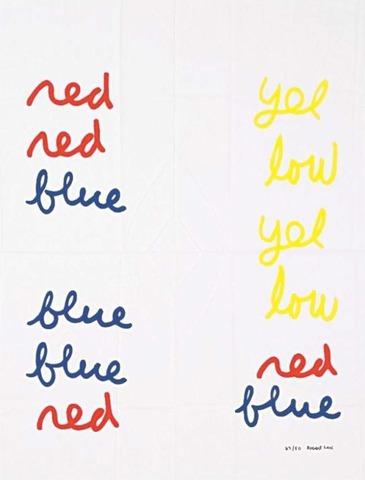 red
red
blue
blue
blue
red
yel
low
yel
low
red
blue
27/50 Robert Lax